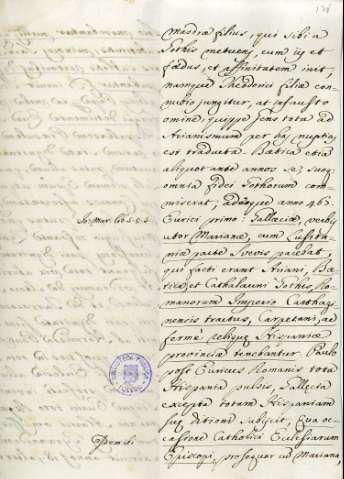 masdræ filius, qui sibi a
Gothis metuens, cum iis et
fœdus, et affinitatem init,
namque Theodorici filiæ con-
nubio jungitur, at infausto
omine; quippe gens tota ad
Arianismum per has nuptias
est traducta. Bætica etiã
aliquot ante annos se, suaq.
omnia fidei Gothorum com-
miserat; adeoque anno 466.
Eurici primo: Gallæciæ, verbis
utor Marianæ, cum Lusita-
niæ parte Suevis parebat,
qui facti erant Ariani, Bæ-
tica et Cathalauni Gothis, Ro-
manorum Imperio Carthagi-
nensis tractus, Carpetani, ac
fermè reliquæ Hispaniæ
provinciæ tenebantur. Paulo
post Euricus Romanis tota
Hispania pulsis, Gallecia
excepta totam Hispaniam
suæ ditioni subjecit, Qua oc-
casione Catholici Ecclesiarum
Episcopi, prosequor cum Mariana,
Jo: Mar. lib. 5. c. 5.